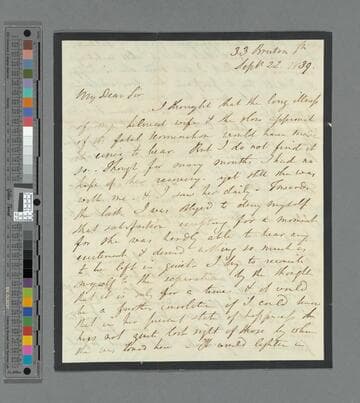 33 Bruton St
Sept 22 1839
My Dear Sir
I thought that the long illness
of my beloved wife & the slow approach
of its fatal termination would have made
it easy to bear But I do not find it
so - Though for many months I had no
hope of her recovery yet still she was
with me & I saw her daily - Towards
the last, I was obliged to deny myself
that satisfaction excepting for a moment
for she was hardly able to bear any
excitement & desired nothing so much as
to be left in quiet. I try to reconcile
myself to the separation by the thought
that it is only for a time & it would
be a further consolation if I could know
that in her present state of happiness she
has not quite lost sight of those by whom
she was loved here - It would lighten